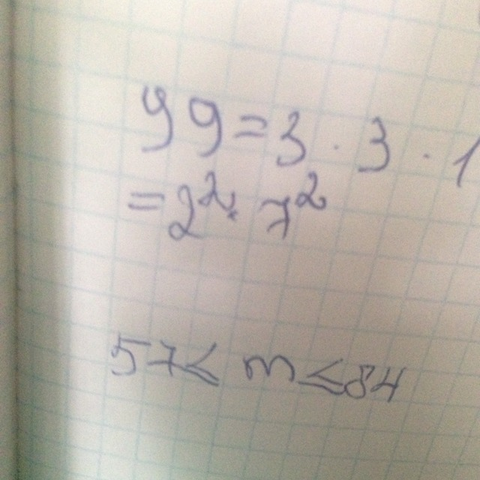 99 = 3 · 3 · 1
= 2² · 7²
57 ≤ m ≤ 84